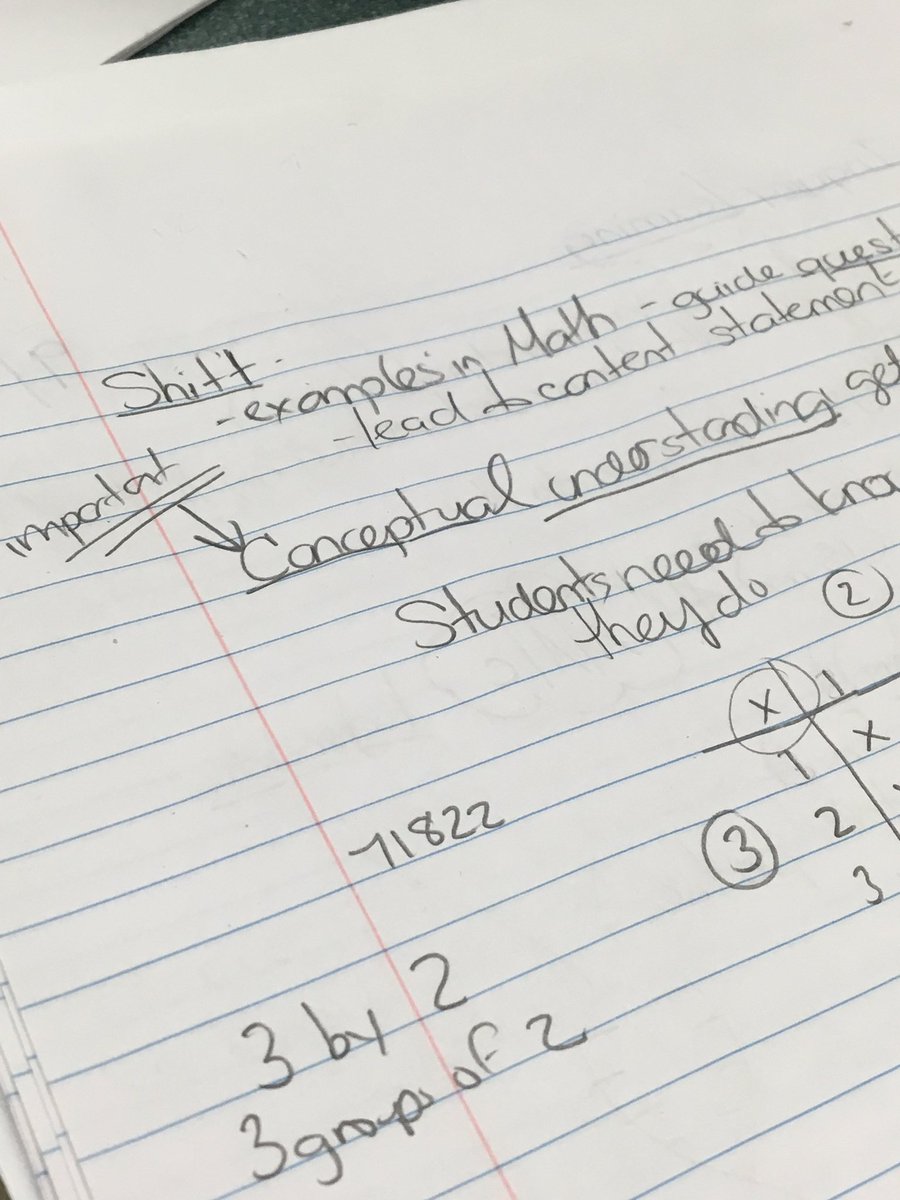 Shift
- examples in Math - guide quest
- lead to content statement
important
Conceptual understanding get
Students need to kno
they do
2
X 1
1 X
3 2
3
71822
3 by 2
3 groups of 2